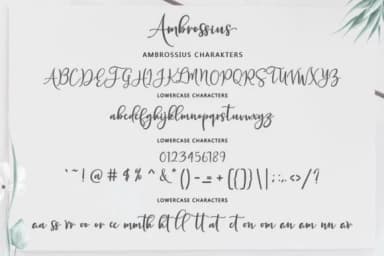 Ambrossius
AMBROSSIUS CHARAKTERS
ABCDEFGHIJKLMNOPQRSTUVWXYZ
LOWERCASE CHARACTERS
abcdefghijklmnopqrstuvwxyz
LOWERCASE CHARACTERS
0123456789
` ~ ! @ # $ % ^ & * ( ) - _ = + [ { ] } \ | ; : , . < > / ?
LOWERCASE CHARACTERS
aa ss rr oo or cc mm th ht ll tt at et on om an am nn ar